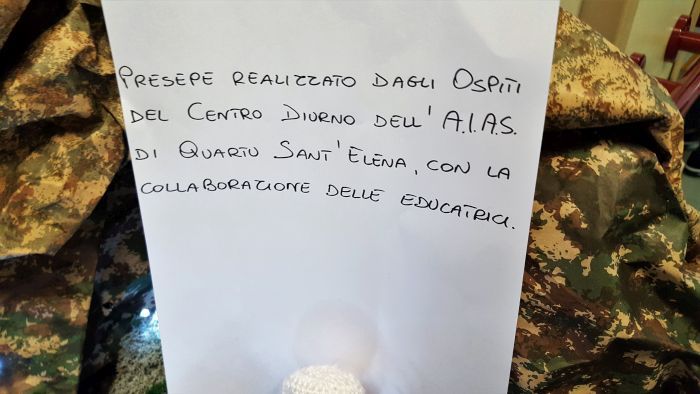 PRESEPE REALIZZATO DAGLI OSPITI
DEL CENTRO DIURNO DELL' A.I.A.S.
DI QUARTU SANT'ELENA, CON LA
COLLABORAZIONE DELLE EDUCATRICI.